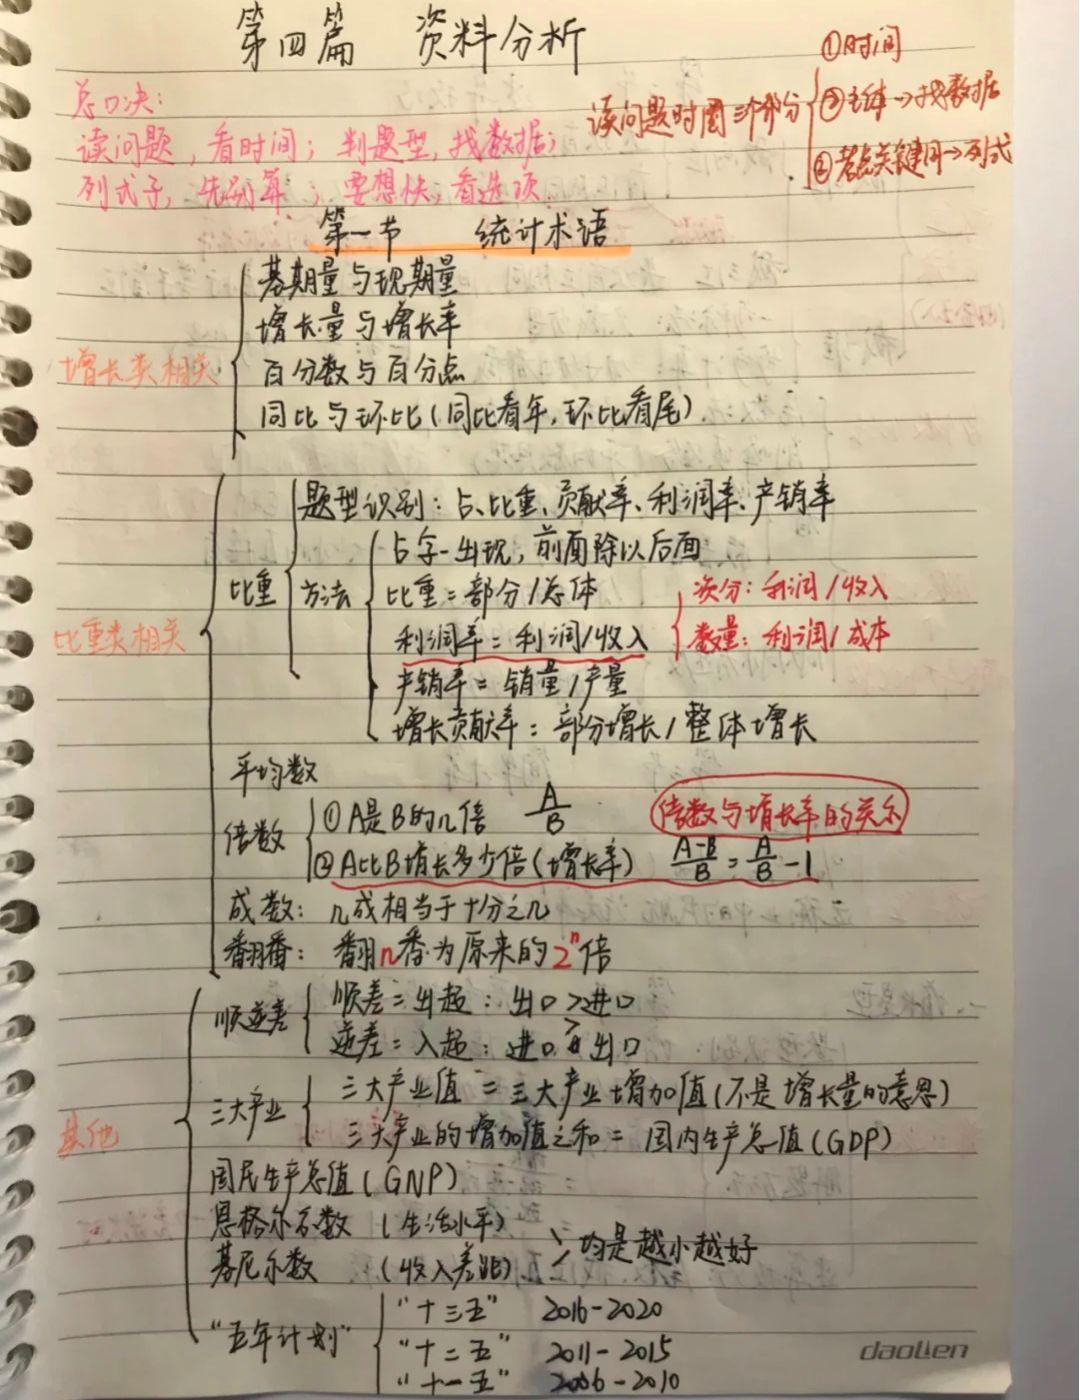 第四篇 资料分析
总口决:
读问题,看时间;判题型,找数据;
列式子,先别算;要想快,看选项
读问题时圈三个部分
①时间
②主体→找数据
③考点关键词→列式
第一节 统计术语
增长类相关
基期量与现期量
增长量与增长率
百分数与百分点
同比与环比(同比看年,环比看尾)
比重类相关
比重
题型识别:占、比重、贡献率、利润率、产销率
方法
占字一出现,前面除以后面
比重=部分/总体
利润率=利润/收入
资分:利润/收入
数量:利润/成本
产销率=销量/产量
增长贡献率=部分增长/整体增长
平均数
倍数
①A是B的几倍 A/B
倍数与增长率的关系
②A比B增长多少倍(增长率) A-B/B=A/B-1
成数:几成相当于十分之几
翻番:翻n番为原来的2ⁿ倍
其他
顺逆差
顺差=出超:出口>进口
逆差=入超:进口>出口
三大产业
三大产业值=三大产业增加值(不是增长量的意思)
三大产业的增加值之和=国内生产总值(GDP)
国民生产总值(GNP)
恩格尔系数(生活水平)
基尼系数(收入差距)
均是越小越好
"五年计划"
"十三五" 2016-2020
"十二五" 2011-2015
"十一五" 2006-2010
daolien